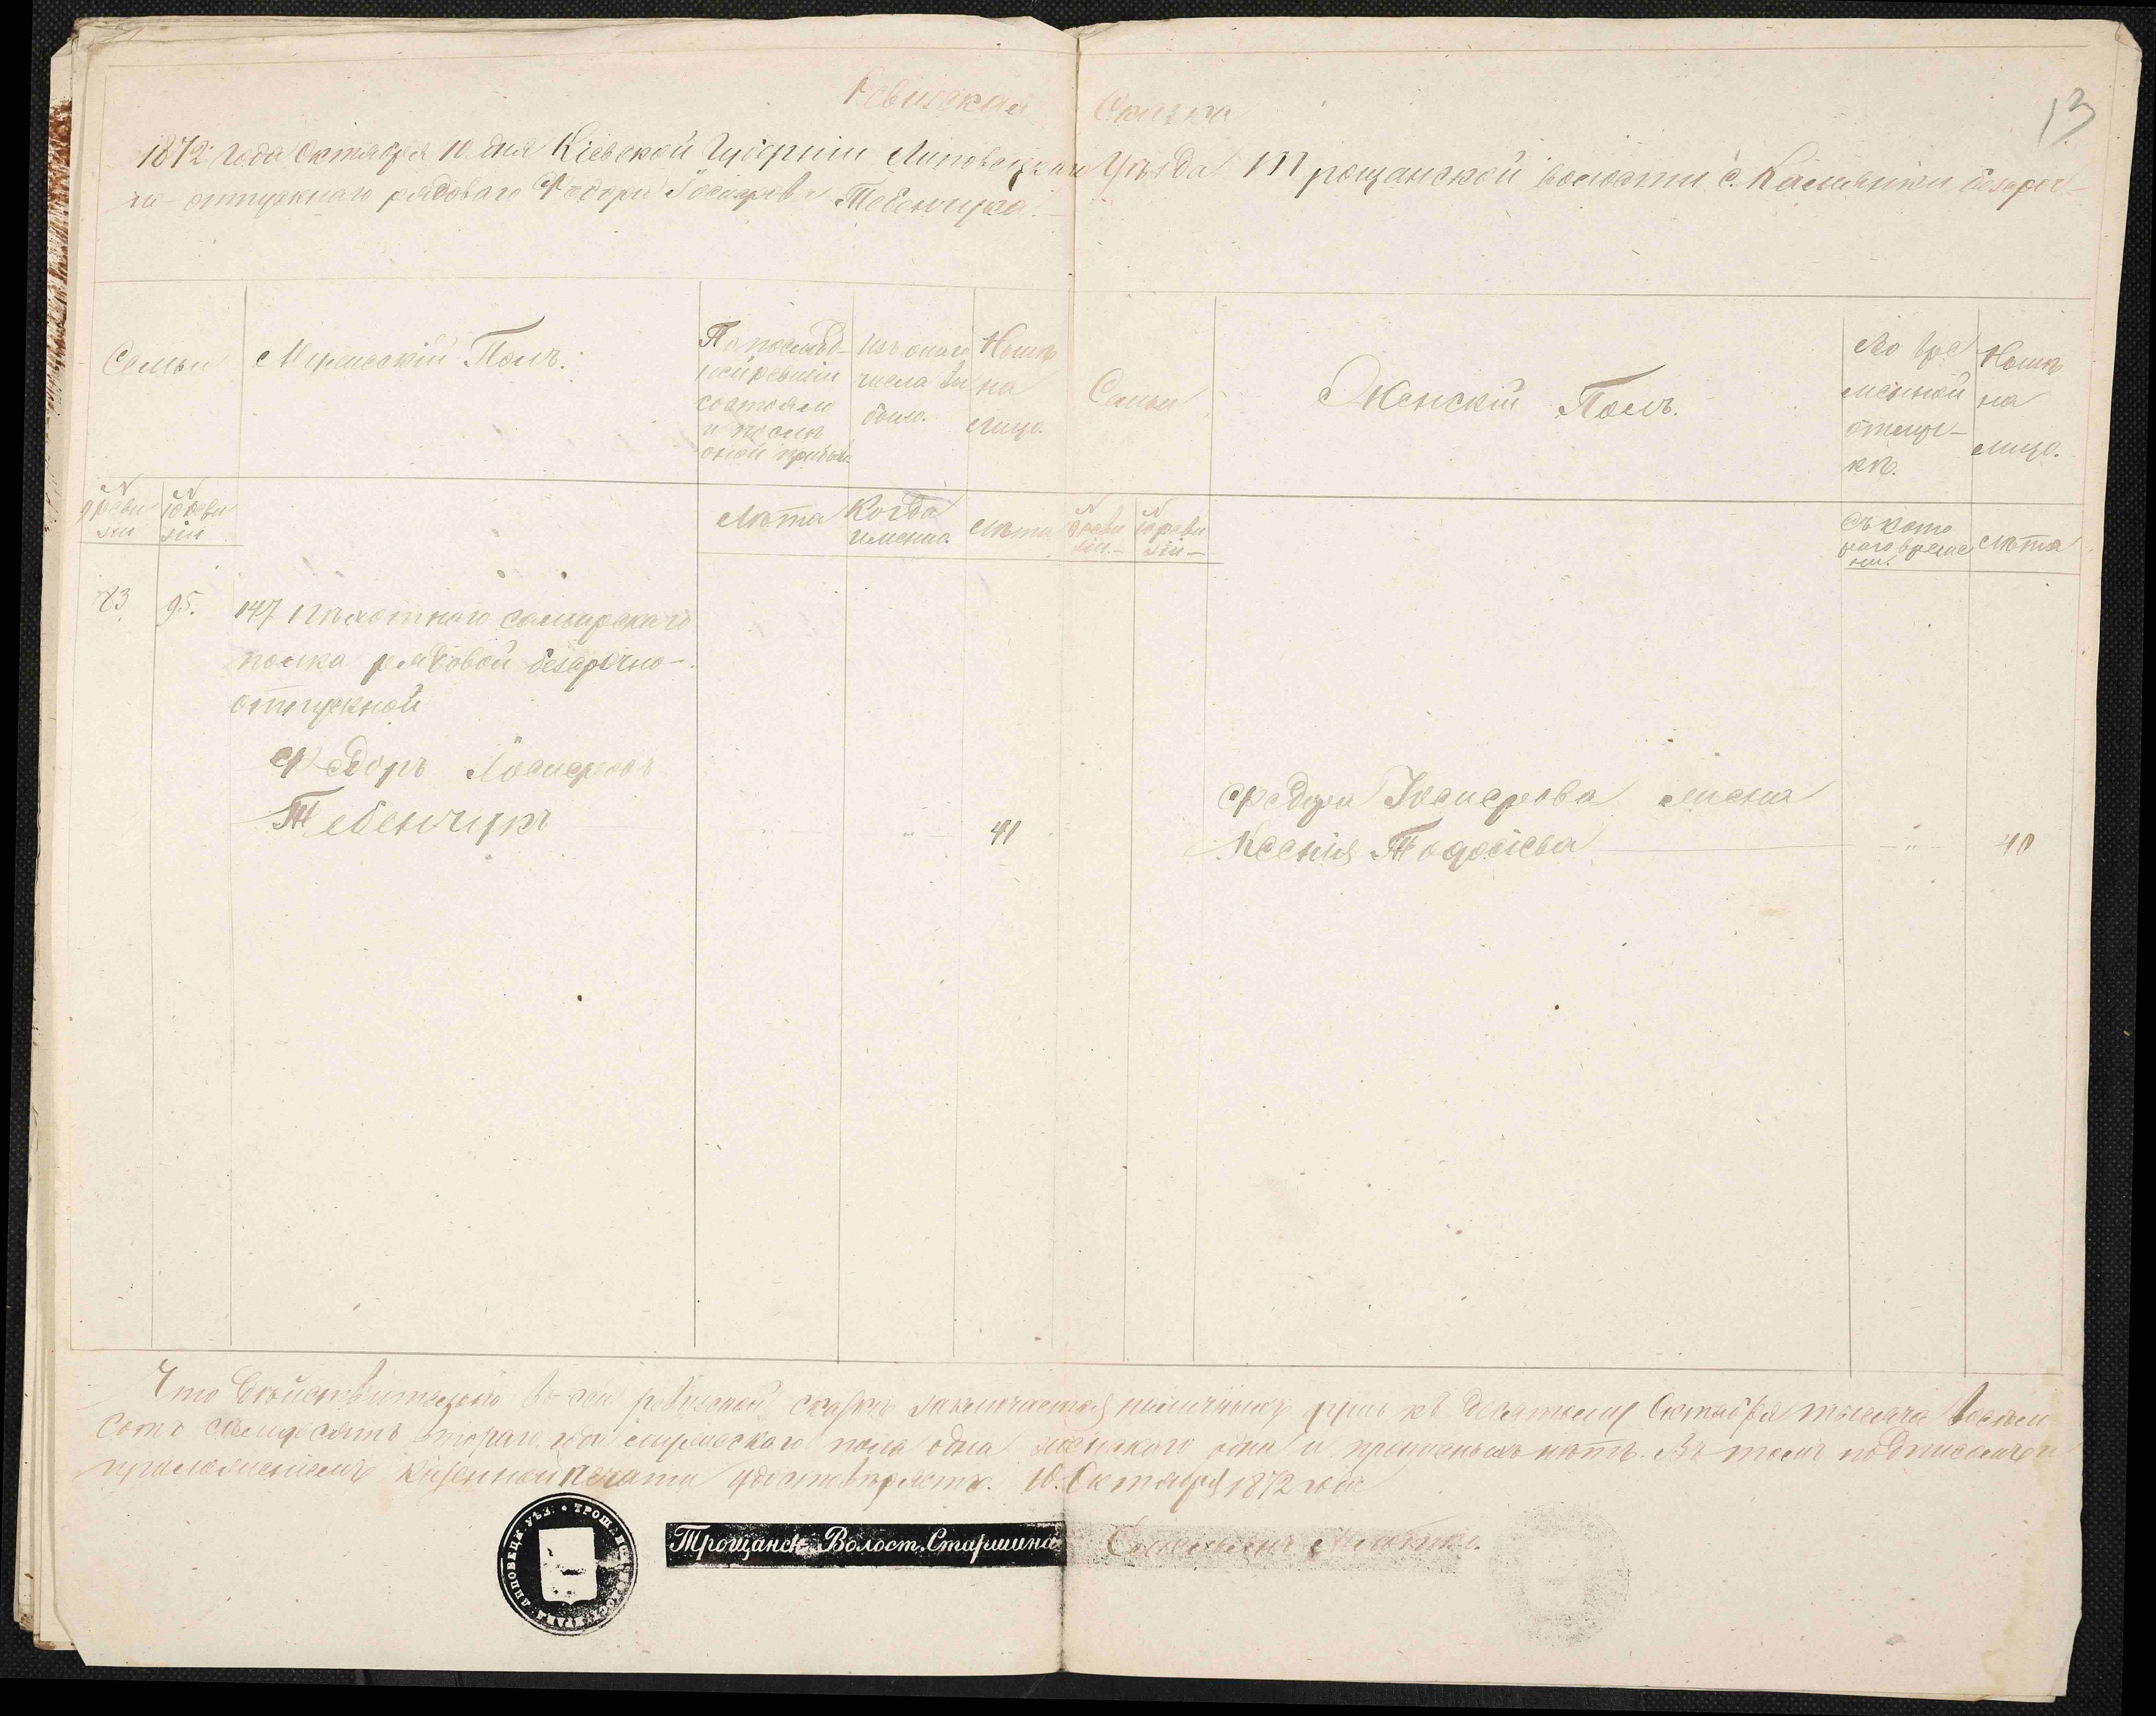 13
Ревизская Сказка
1872 года Октября 10 дня Кіевской Губерніи Липовецкаго Уѣзда Трощанской волости с. Кальники безсроч-
но-отпускнаго рядоваго Федора Іосифова Тебенчука.
Семьи
Мужескій Полъ.
По послѣд-
ней ревизіи
состояло
и послѣ
оной прибыло
Изъ онаго
числа вы
было.
Нынѣ
на
лицо.
Семьи
Женскій Полъ.
Во вре
менной
отлуч-
кѣ.
Нынѣ
на
лицо.
№ 9 реви
зіи
№ 10 реви
зіи
Лѣта
Когда
именно.
Лѣта
№ 9 реви
зіи
№ 10 реви
зіи
Съ кото
раго време
ни.
Лѣта
95.
147 Пѣхотнаго Самарскаго
полка рядовой безсрочно-
отпускной
Федоръ Іосифовъ
Тебенчукъ
41
Федора Іосифова жена
Ксенія Тодосіева
40
Что дѣйствительно въ сей ревизской сказкѣ заключается наличныхъ душъ къ десятому Октября тысяча восемь
сотъ семьдесятъ втораго года мужескаго пола одна женскаго одна и прописныхъ нѣтъ. Въ томъ подписомъ и
приложеніемъ казенной печати удостовѣряетъ. 10. Октября 1872 года
Трощанск. Волост. Старшина
ЛИПОВЕЦК УѢЗ. • ТРОЩАНС